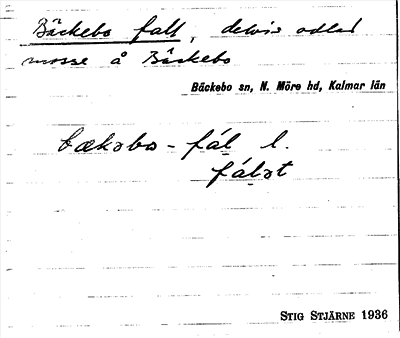 Bäckebo fall, delvis odlad
mosse å Bäckebo
Bäckebo sn, N. Möre hd, Kalmar län
bækəbo - fál l.
fálət
STIG STJÄRNE 1936